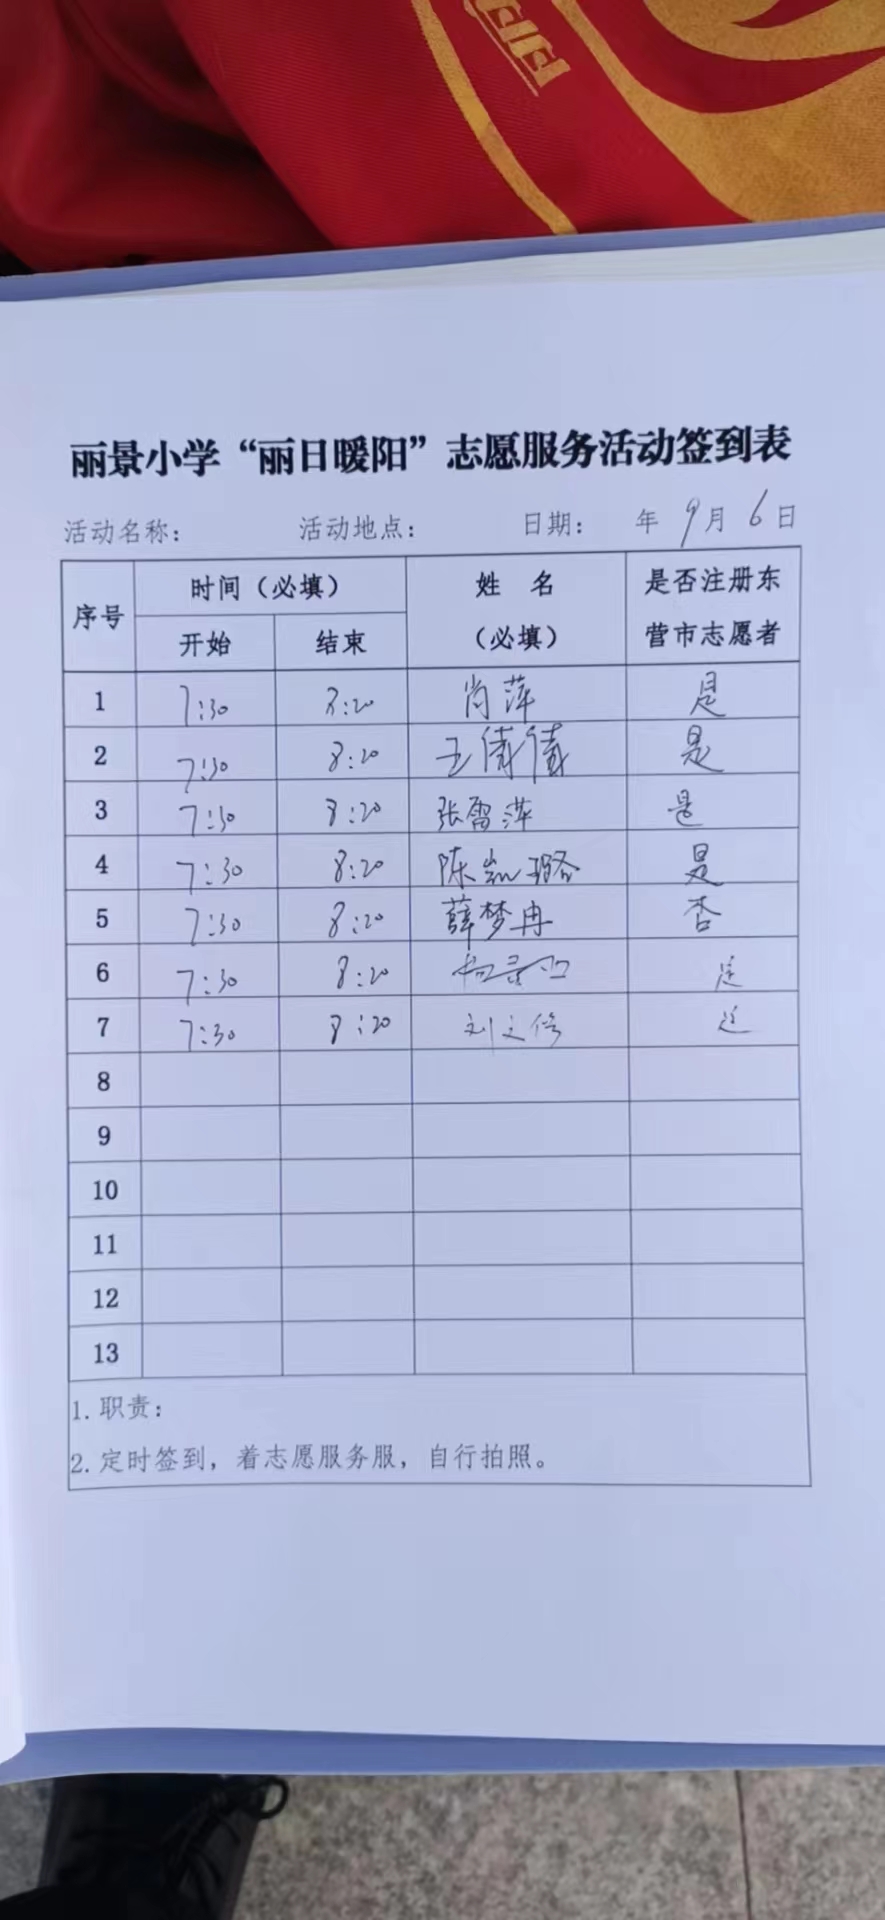 丽景小学“丽日暖阳”志愿服务活动签到表
活动名称： 活动地点： 日期： 年 9月 6日
序号 时间（必填） 姓 名（必填） 是否注册东营市志愿者
开始 结束
1 7:30 8:20 肖萍 是
2 7:30 8:20 王倩倩 是
3 7:30 8:20 张雷萍 是
4 7:30 8:20 陈凯璐 是
5 7:30 8:20 薛梦冉 否
6 7:30 8:20 是
7 7:30 8:20 刘文修 是
8
9
10
11
12
13
1. 职责：
2. 定时签到，着志愿服务服，自行拍照。